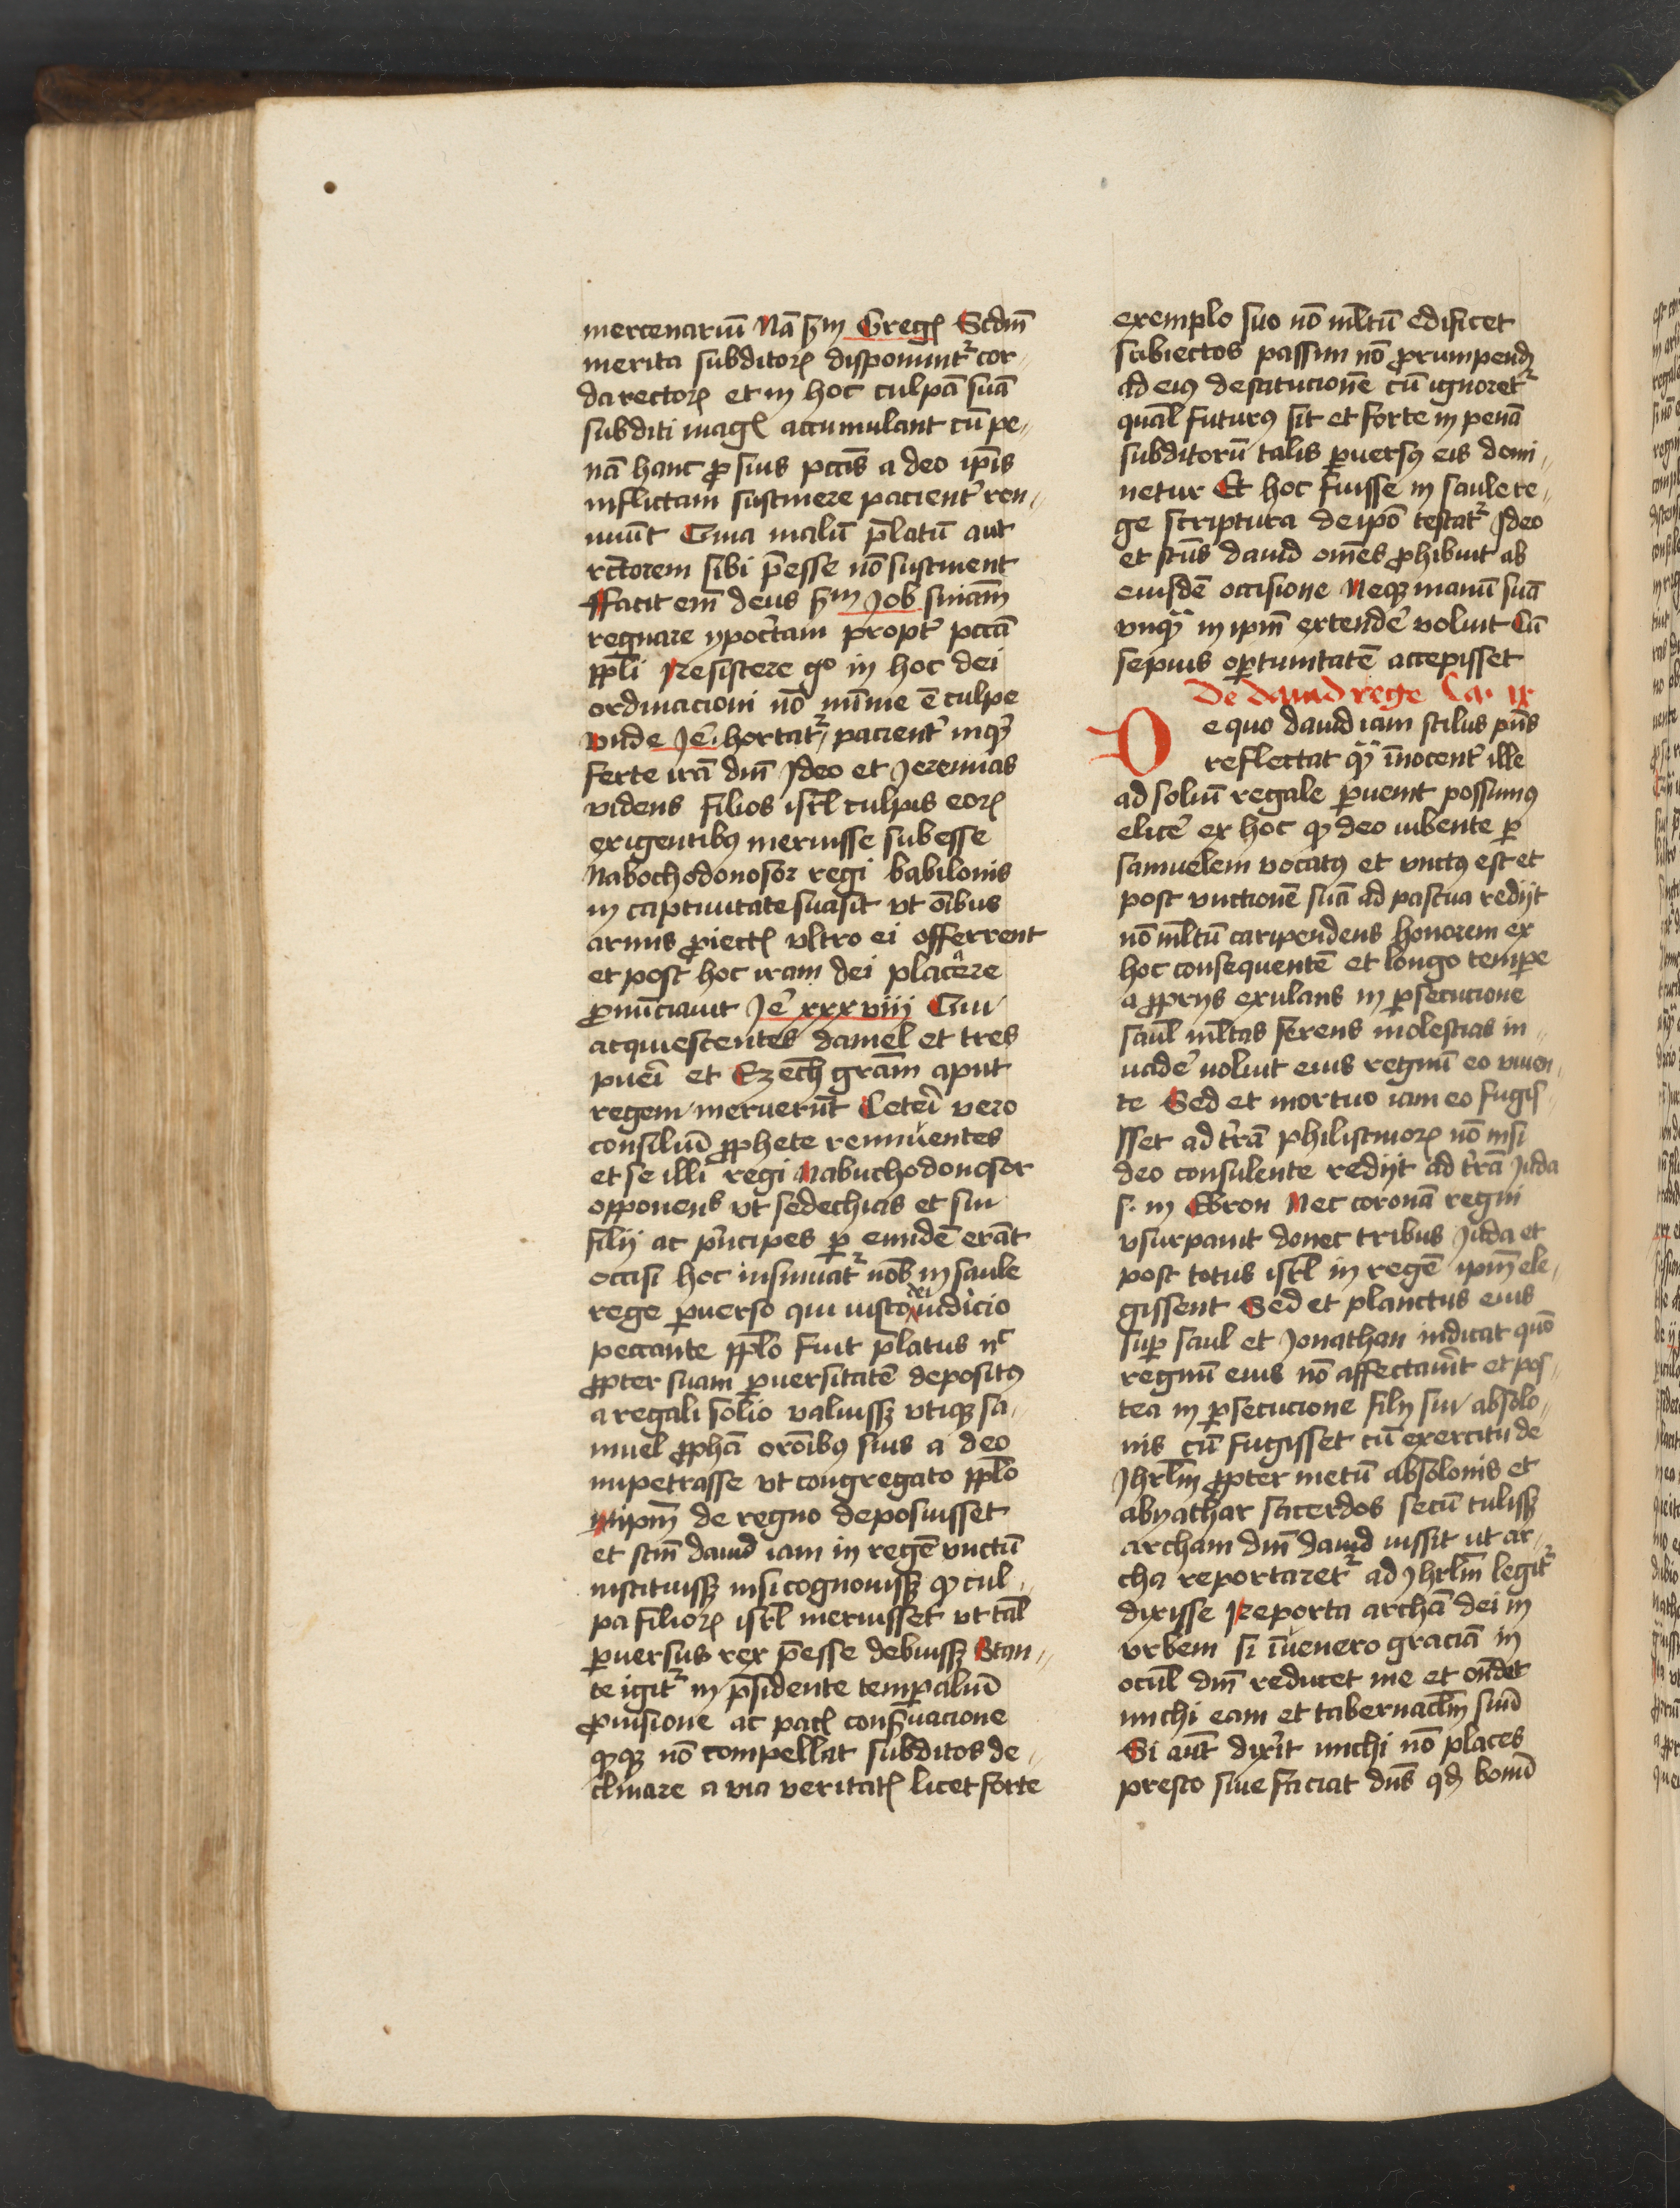 mercenariū Nā s̄m Gregꝭ Scdm̄
merita subditoꝝ disponunt᷑ cor-
da rectoꝝ et in hoc culpā suā
subditi magꝭ accumulant cū pe-
nā hanc ꝓ suis pccīs a deo ip̄is
inflictam sustinere pacient᷑ ren-
nuūt Cum malū p̄latū aut
rectorem sibi p̄esse nō sustinent
ffacit em̄ deus s̄m Job
regnare ypoc̄tam propt᷑ pccā
ppl̄i Resistere gº in hoc dei
ordinacioni nō minime ē culpe
vnde Je. hortat᷑ pacient᷑ inqͣ
ferte irā dn̄i Ideo et Jeremias
videns filios isrl̄ culpis eoꝝ
exigentibꝰ meruisse subesse
Nabochodonosor regi babilonis
in captiuitate suasit vt oībus
armis ꝓiectꝭ vltro ei offerrent
et post hoc iram dei placare
ꝓnūciauit Je xxxviij Cui
acquiescentes daniel et tres
pueri et Ezech gram̄ aput
regem meruerūt Ceteri vero
consiliū ꝓphete rennuentes
et se illi regi Nabuchodonosor
opponens vt sedechias et sui
filij ac p̄ncipes ꝑ eundē erāt
occisi hoc insinuat᷑ nob̄ in saule
rege ꝑuerso qui iusto dei iudicio
peccante pplō fuit p̄latus nͨ
ꝓpter suam ꝑuersitatē depositꝰ
a regali solio valuissꝫ vtiqꝫ sa-
muel ꝓphā orōibꝰ suis a deo
impetrasse vt congregato pplō
ip̄m de regno deposuisset
et scm̄ dauid iam in regē vnctū
instituissꝫ nisi cognouissꝫ ꝙ cul-
pa filioꝝ isrl̄ meruisset vt tal̄
ꝑuersus rex p̄esse debuissꝫ Stan-
te igit᷑ in p̄sidente temꝑaliū
ꝓuisione ac pacꝭ conseruacione
ꝙqꝫ nō compellat subditos de-
clinare a via veritatꝭ licet forte
exemplo suo nō ml̄tū edificet
subiectos passim nō ꝓrumpendū
ad eiꝰ destitucionē cū ignoret᷑
qual̄ futurꝰ sit et forte in penā
subditorū talis ꝑuersꝰ eis domi-
netur Et hoc fuisse in saule re-
ge scriptura de ipō testat᷑ Ideo
et scūs dauid omēs ꝓhibuit ab
eiusdē occisione Neqꝫ manū suā
vnqͣ in ipm̄ extende᷑ voluit Cū
sepius oꝑtunitatē accepisset
De dauid rege Ca. ix
De quo dauid iam stilus pn̄s
reflectat qͣ īnocent᷑ ille
ad soliū regale ꝑuenit possumꝰ
elice᷑ ex hoc ꝙ deo iubente ꝑ
samuelem vocatꝰ et vnctꝰ est et
post vnctionē suā ad pascua redijt
nō ml̄tū caripendens honorem ex
hoc consequentē et longo temꝑe
a ꝓprijs exulans in ꝑsecucione
saul̄ ml̄tas ferens molestias in-
uade᷑ noluit eius regnū eo viuen-
te Sed et mortuo iam eo fugis-
sset ad t᷑rā philistinoꝝ nō nisi
deo consulente redijt ad t᷑rā Juda
s. in Ebron Nec coronā regni
vsurpauit donec tribus Juda et
post totus isrl̄ in regē ipm̄ ele-
gissent Sed et planctus eius
suꝑ saul et Jonathan indicat quō
regnū eius nō affectauit et pos-
tea in ꝑsecucione filij sui absolo-
nis cū fugisset cū exercitu de
Jhrlm̄ ꝓpter metū absolonis et
abyathar sacerdos secū tulissꝫ
archam dn̄i dauid iussit ut ar-
cha reportaret᷑ ad Jhrlm̄ legit᷑
dixisse Reporta archā dei in
vrbem si īuenero graciā in
ocul̄ dn̄i reducet me et ondet
michi eam et tabernaclm̄ suū
Si aut̄ dixit michi nō places
presto sūe faciat dn̄s qd̄ bonū